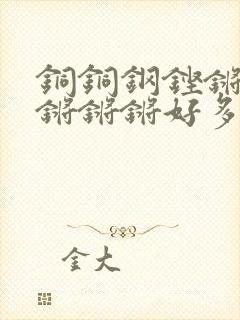 銅銅鋼鏗鏘
鏘鏘鏘好多
金大